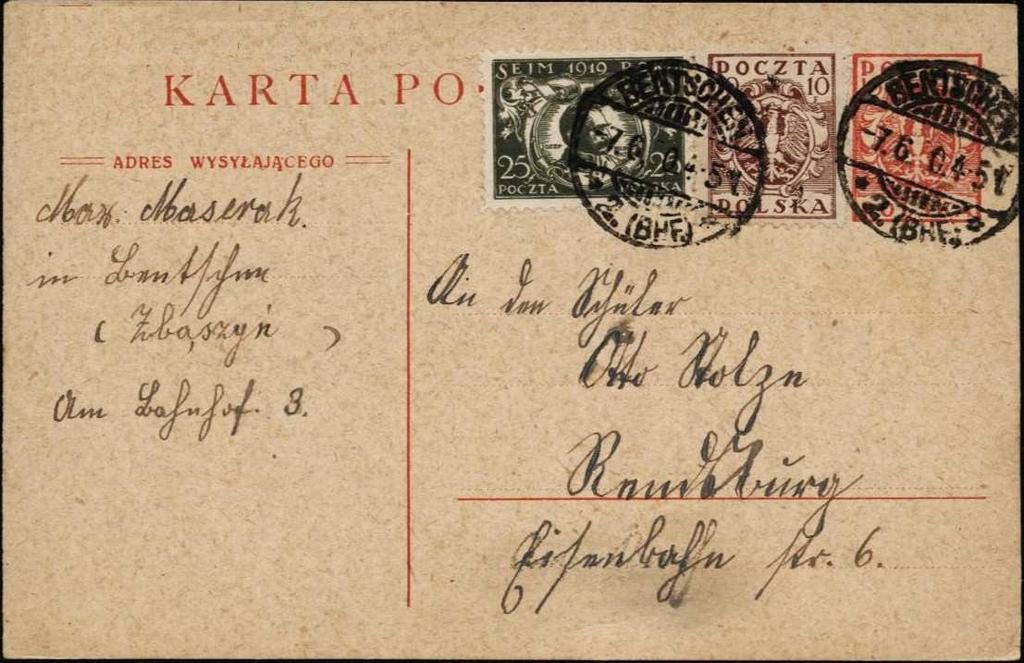 KARTA PO
SEJM 1919 R
25
POCZTA
POCZTA
10
POLSKA
BENTSCHEN
-7.6. 0.4-5N
* 2. (BHF.) *
BENTSCHEN
-7.6. 0.4-5N
* 2. (BHF.) *
ADRES WYSYŁAJĄCEGO
Max. Maserak.
in Bentschen
( Zbąszyń )
Am Bahnhof. 3.
An den Schüler
Otto Stolze
Rendsburg
Eisenbahn str. 6.